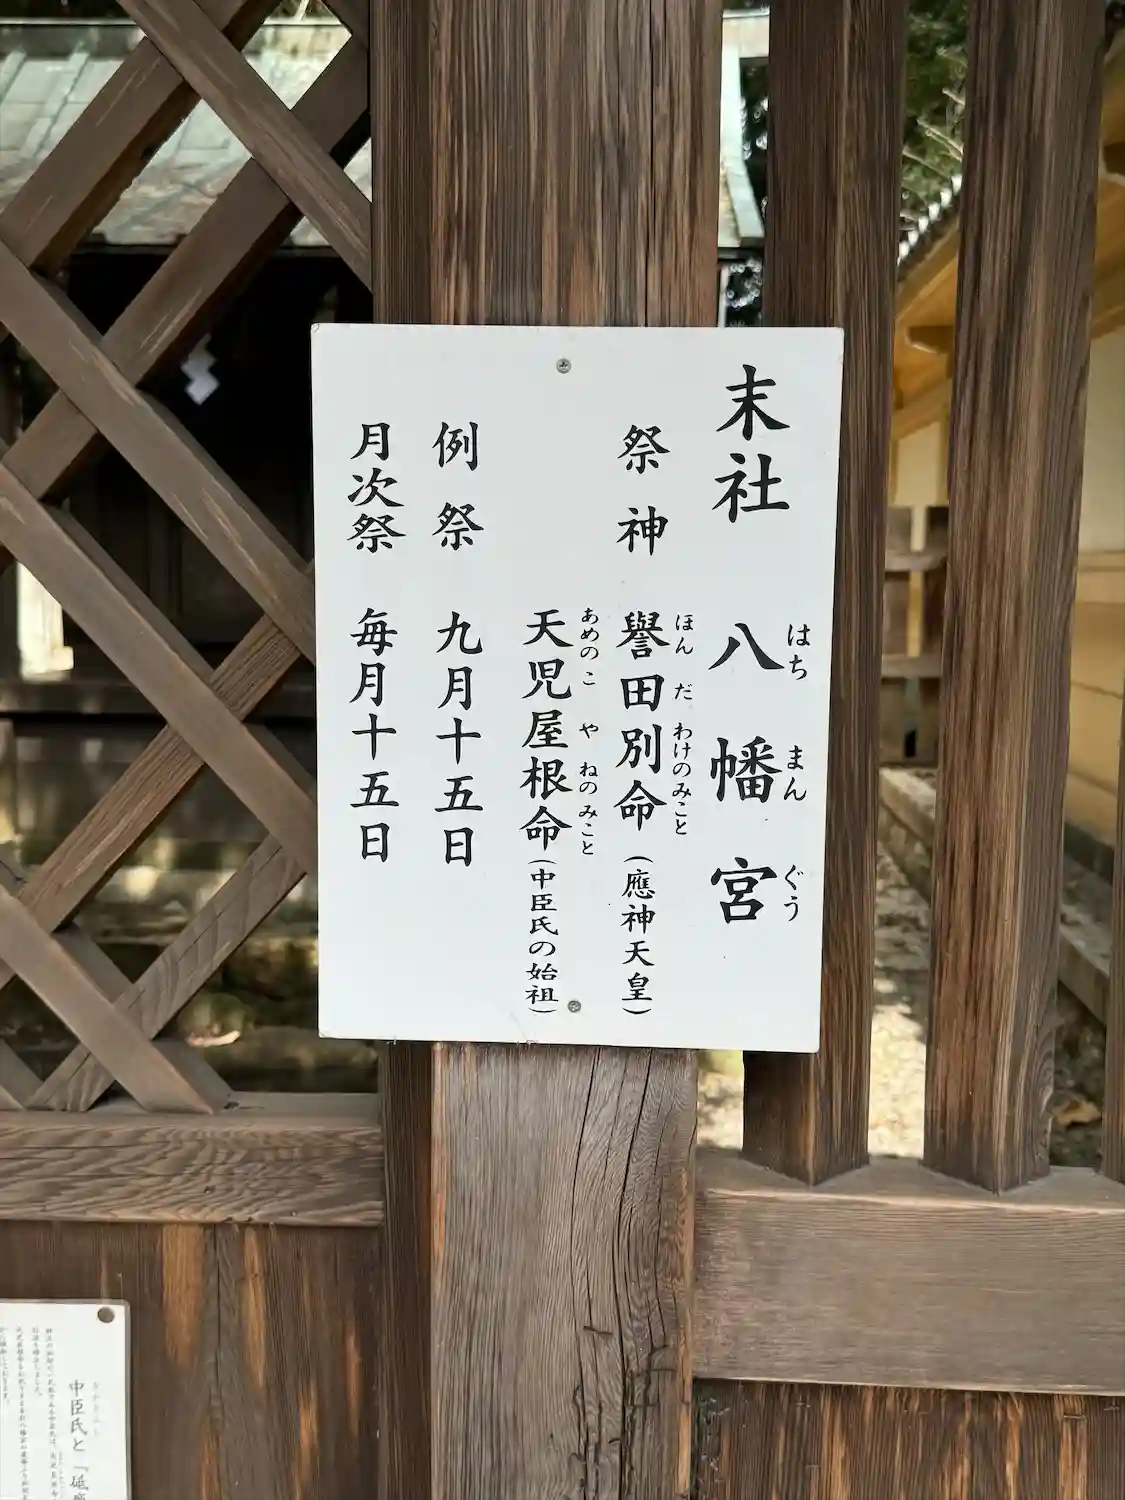 末社 八幡宮
はちまんぐう
祭神 譽田別命(應神天皇)
ほんだわけのみこと
天児屋根命(中臣氏の始祖)
あめのこやねのみこと
例祭 九月十五日
月次祭 毎月十五日
中臣氏と「砥